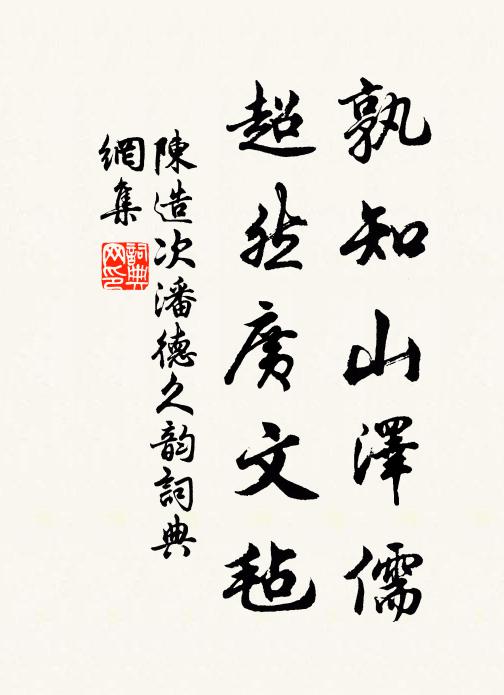 孰知山澤儒
超然廣文毡
陳造次潘德久韵詞典
網集
詞典
网印